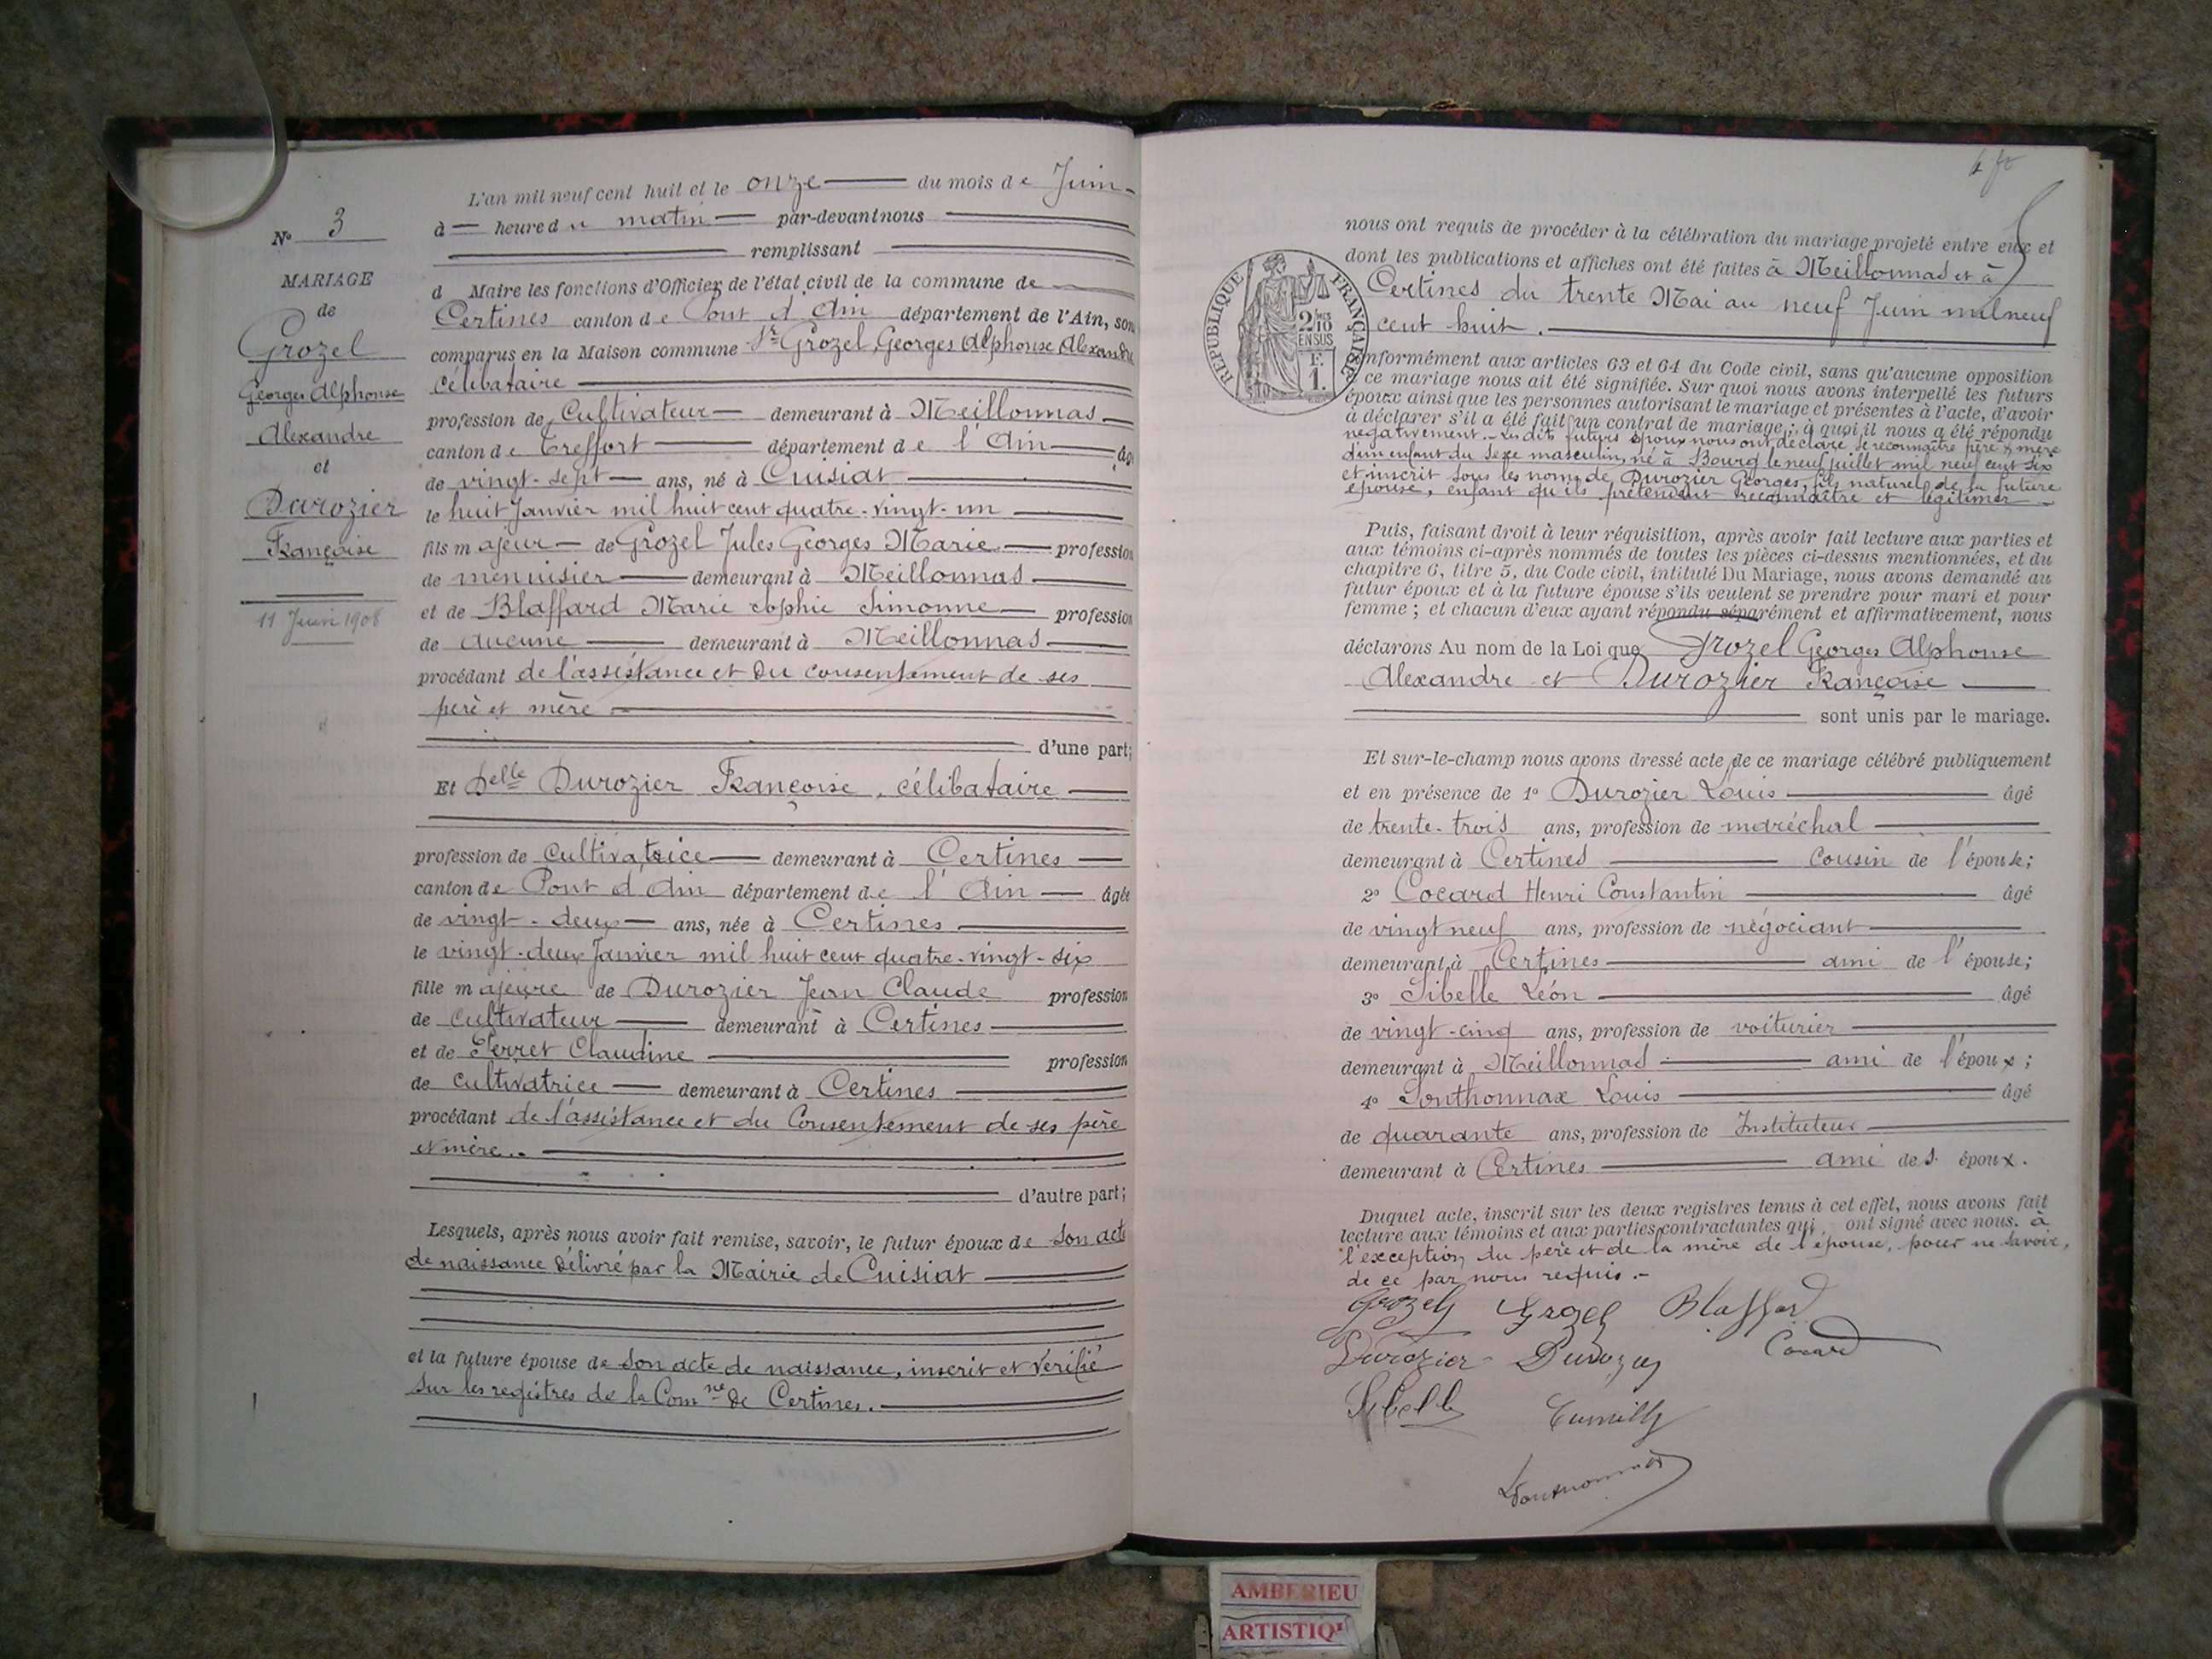 N° 3
MARIAGE
de
Grozel
Georges Alphonse
Alexandre
et
Durozier
Françoise
11 Juin 1908
L'an mil neuf cent huit et le onze du mois de Juin
à heure du matin par-devant nous
remplissant
d Maire les fonctions d'Officier de l'état civil de la commune de
Certines canton de Pont d'Ain département de l'Ain, son
comparus en la Maison commune Sr Grozel, Georges Alphonse Alexandre
célibataire
profession de Cultivateur demeurant à Meillonnas
canton de Treffort département de l'Ain âg
de vingt-sept ans, né à Cuisiat
le huit Janvier mil huit cent quatre-vingt-un
fils majeur de Grozel Jules Georges Marie profession
de menuisier demeurant à Meillonnas
et de Blaffard Marie Sophie Simonne profession
de aucune demeurant à Meillonnas
procédant de l'assistance et du consentement de ses
père et mère
d'une part;
Et Delle Durozier Françoise, célibataire
profession de Cultivatrice demeurant à Certines
canton de Pont d'Ain département de l'Ain âgée
de vingt-deux ans, née à Certines
le vingt-deux Janvier mil huit cent quatre-vingt-six
fille majeure de Durozier Jean Claude profession
de Cultivateur demeurant à Certines
et de Perret Claudine profession
de Cultivatrice demeurant à Certines
procédant de l'assistance et du Consentement de ses père
et mère.
d'autre part;
Lesquels, après nous avoir fait remise, savoir, le futur époux de son acte
de naissance délivré par la Mairie de Cuisiat
et la future épouse de son acte de naissance, inscrit et vérifié
sur les registres de la Com ne de Certines.
RÉPUBLIQUE FRANÇAISE
2/10 EN SUS
F. 1.
nous ont requis de procéder à la célébration du mariage projeté entre eux et
dont les publications et affiches ont été faites à Meillonnas et à
Certines du trente Mai au neuf Juin mil neuf
cent huit.
onformément aux articles 63 et 64 du Code civil, sans qu'aucune opposition
à ce mariage nous ait été signifiée. Sur quoi nous avons interpellé les futurs
époux ainsi que les personnes autorisant le mariage et présentes à l'acte, d'avoir
à déclarer s'il a été fait un contrat de mariage; à quoi il nous a été répondu
négativement. Les dits futurs époux nous ont déclaré se reconnaître père & mère
d'un enfant du sexe masculin, né à Bourg le neuf juillet mil neuf cent six
et inscrit sous les noms de Durozier Georges, fils naturel de la future
épouse, enfant qu'ils prétendent reconnaître et légitimer
Puis, faisant droit à leur réquisition, après avoir fait lecture aux parties et
aux témoins ci-après nommés de toutes les pièces ci-dessus mentionnées, et du
chapitre 6, titre 5, du Code civil, intitulé Du Mariage, nous avons demandé au
futur époux et à la future épouse s'ils veulent se prendre pour mari et pour
femme; et chacun d'eux ayant répondu séparément et affirmativement, nous
déclarons Au nom de la Loi que Grozel Georges Alphonse
Alexandre et Durozier Françoise
sont unis par le mariage.
Et sur-le-champ nous avons dressé acte de ce mariage célébré publiquement
et en présence de 1° Durozier Louis âgé
de trente-trois ans, profession de maréchal
demeurant à Certines cousin de l'épouse;
2° Cocard Henri Constantin âgé
de vingt neuf ans, profession de négociant
demeurant à Certines ami de l'épouse;
3° Sibelle Léon âgé
de vingt-cinq ans, profession de voiturier
demeurant à Meillonnas ami de l'époux;
4° Ponthonnax Louis âgé
de quarante ans, profession de Instituteur
demeurant à Certines ami des époux.
Duquel acte, inscrit sur les deux registres tenus à cet effet, nous avons fait
lecture aux témoins et aux parties contractantes qui ont signé avec nous. à
l'exception du père et de la mère de l'épouse, pour ne savoir,
de ce par nous requis.
Grozel Grozel Blaffard
Durozier Durozier Cocard
Sibelle
AMBERIEU
ARTISTIQ